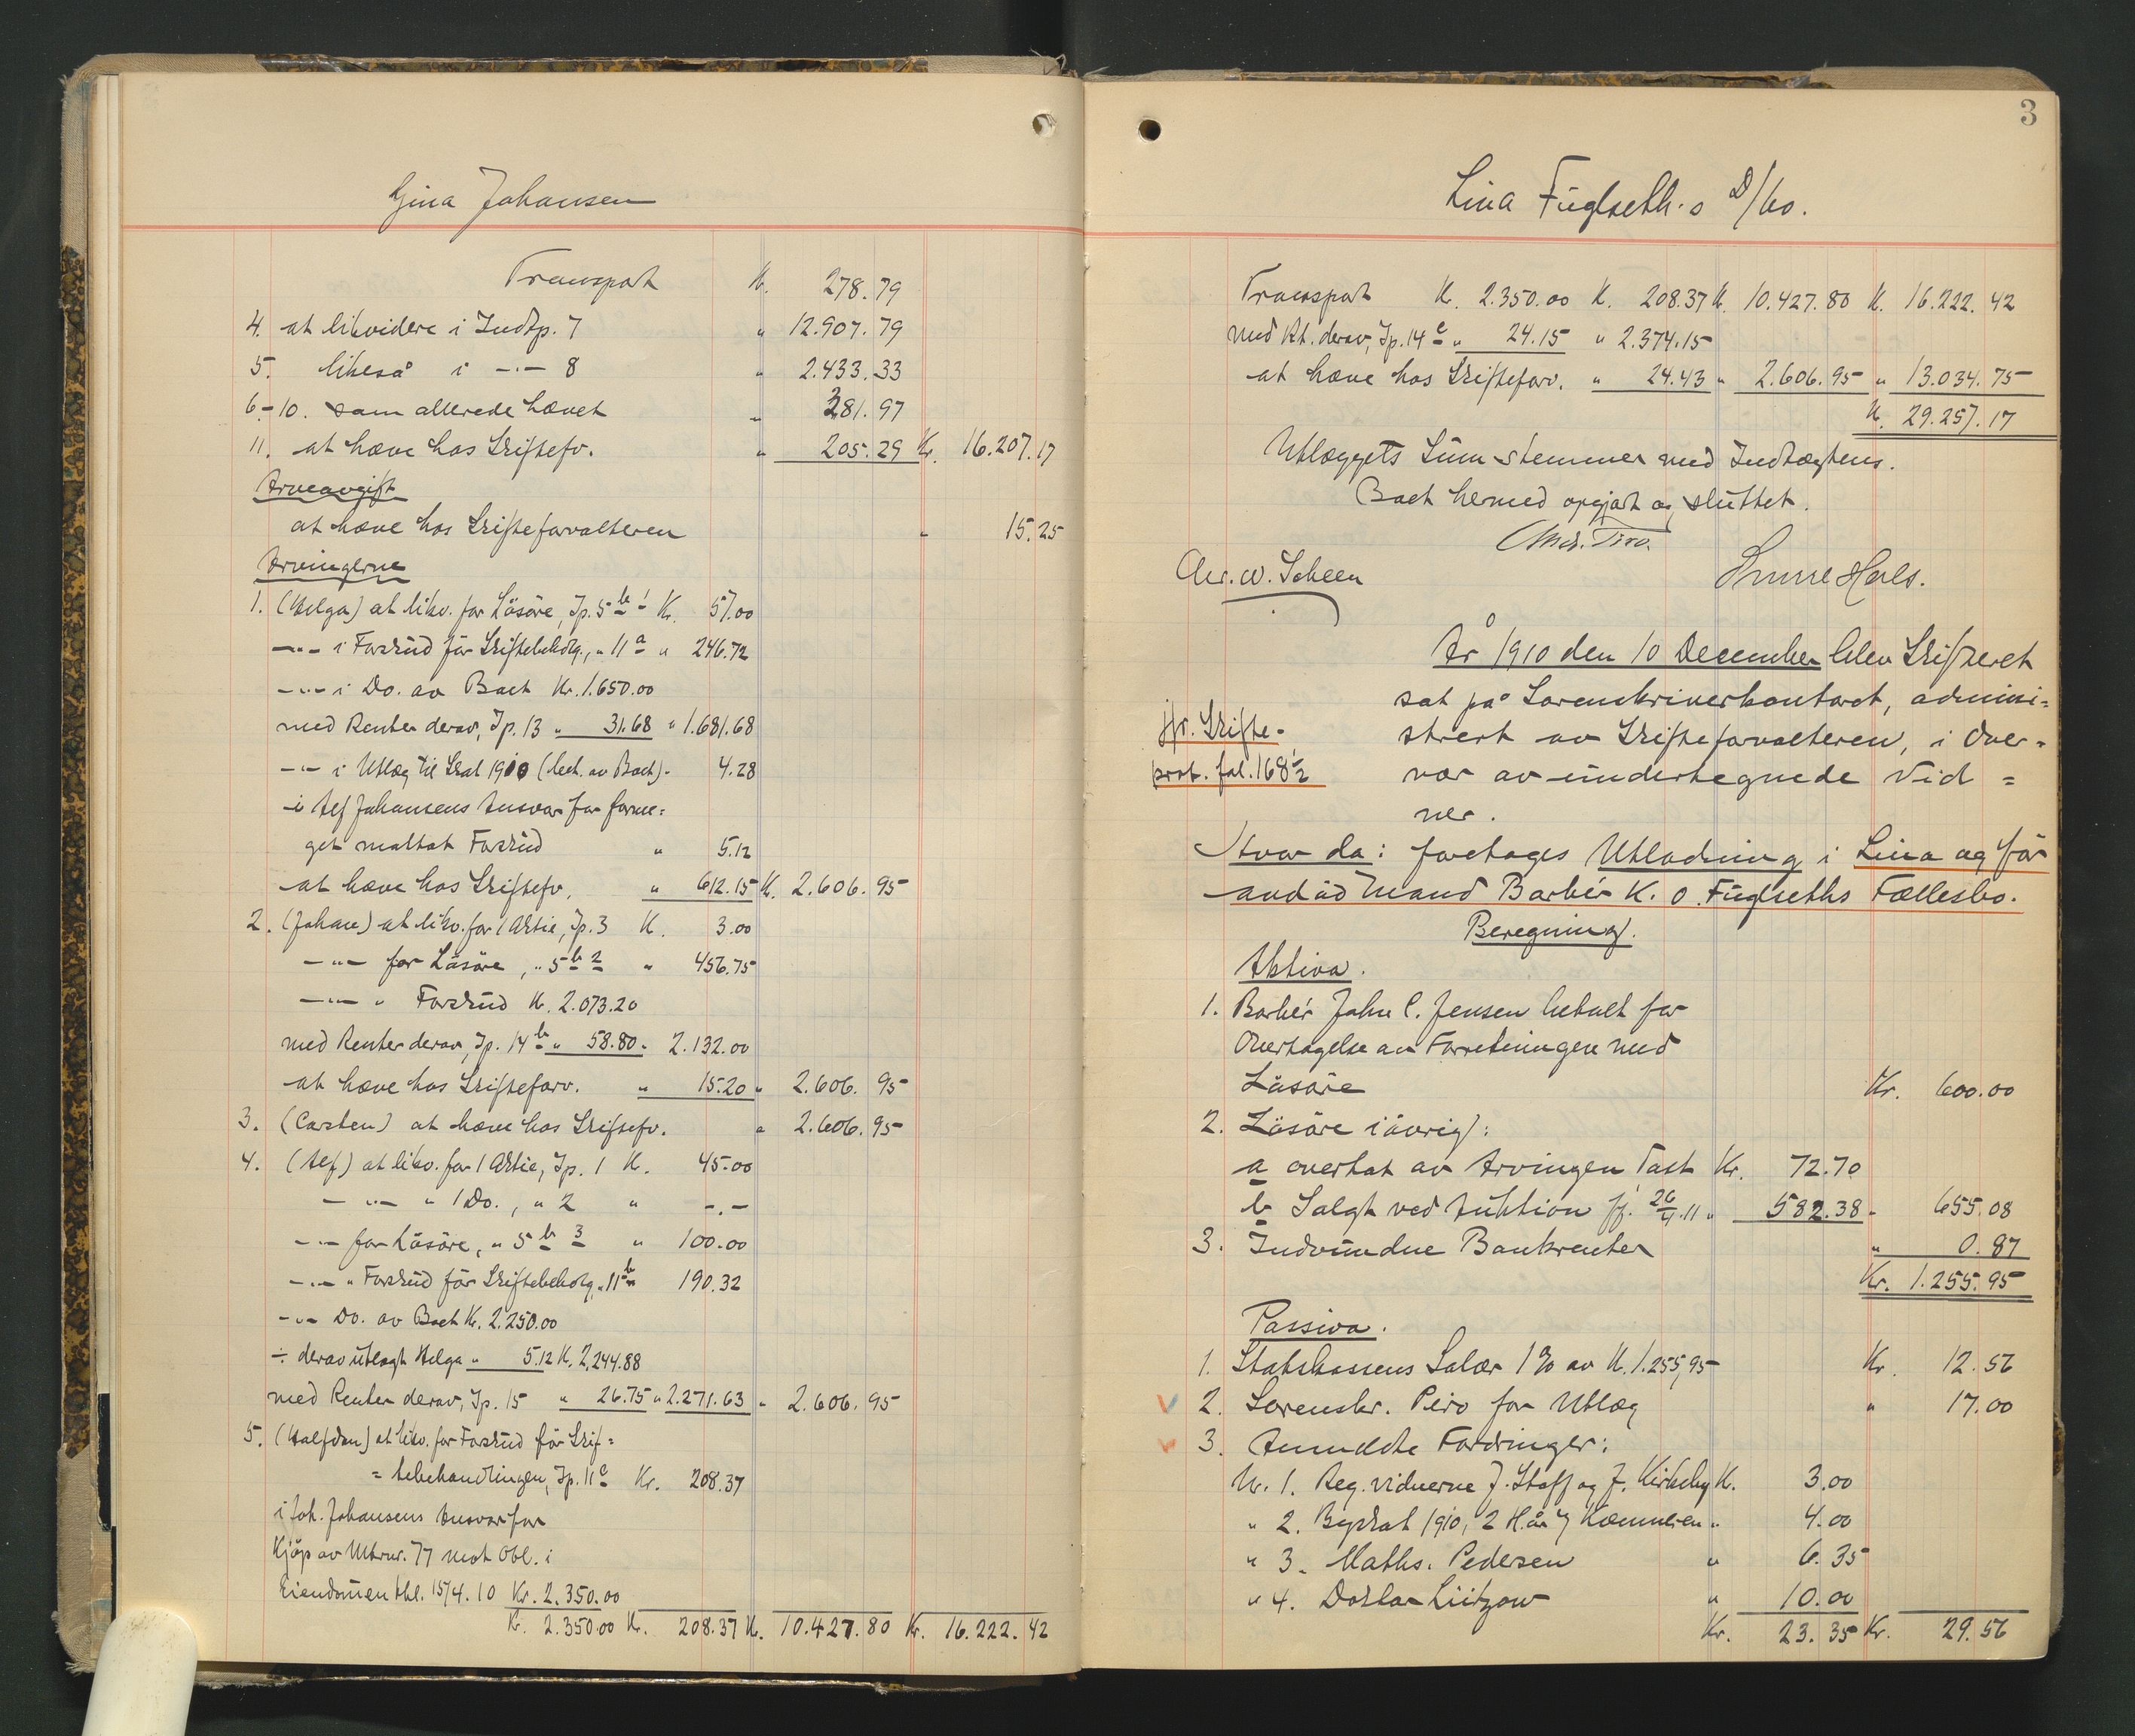 Gina Johansen
Transport K. 278.79
4. at likvidere i Indtp. 7 " 12.907.79
5. likeså i -"- 8 " 2.433.33
6-10. som allerede hævet " 381.97
11. at hæve hos Skiftefv. " 205.29 Kr. 16.207.17
Arveavgift
at hæve hos Skifteforvalteren " 15.25
Arvingerne
1. (Helga) at likv. for Løsøre, Ip. 5 b 1 Kr. 57.00
-"- i Forskud før Skiftebehdlg., " 11 a " 246.72
-"- i Do. av Boet Kr. 1.650.00
med Renter derav, Ip. 13 " 31.68 " 1.681.68
-"- i Utlæg til Skat 1910 (bet. av Boet) - 4.28
i Alf Johansens Ansvar for forme=
get mottat Forskud " 5.12
at hæve hos Skiftefv. " 612.15 K. 2.606.95
2. (Johan) at likv. for 1 Aktie, Ip. 3 K. 3.00
-"- for Løsøre, " 5 b 2 " 456.75
-"- " Forskud K. 2.073.20
med Renter derav, Ip. 14 b " 58.80 " 2.132.00
at hæve hos Skifteforv. " 15.20 " 2.606.95
3. (Carsten) at hæve hos Skiftefv. " 2.606.95
4. (Alf) at likv. for 1 Aktie, Ip. 1 K. 45.00
-"- " 1 Do., " 2 " -.-
-"- for Løsøre, " 5 b 3 " 100.00
-"- " Forskud før Skiftebehdlg. " 11 b " 190.32
-"- Do. av Boet K. 2.250.00
÷ derav utlagt Helga " 5.12 K. 2,244.88
med Renter derav, Ip. 15 " 26.75 " 2.271.63 " 2.606.95
5. (Halfdan) at likv. for Forskud før Skif=
=tebehandlingen, Ip. 11 c Kr. 208.37
i Joh. Johansens Ansvar for
Kjøp av Mtrnr. 77 mot Obl. i
Eiendomen thl. 15/4.10 Kr. 2.350.00
K. 2.350.00 K. 208.37 K. 10.427.80 Kr. 16.222.42
3
Lina Fuglseth's D/bo.
Transport K. 2.350.00 K. 208.37 K. 10.427.80 K. 16.222.42
med Rt. derav, Ip. 14 c " 24.15 " 2.374.15
at hæve hos Skifteforv. " 24.43 " 2.606.95 " 13.034.75
K. 29.257.17
Utlæggets Sum stemmer med Indtægtens.
Boet hermed opgjort og sluttet.
Chr. W. Scheen
År 1910 den 10 December blev Skifteret
sat på Sorenskriverkontoret, admini=
strert av Skifteforvalteren, i Over=
vær av undertegnede Vid=
ner.
Jfr. Skifte-
prot. fol. 168 1/2
Hvor da: foretages Utlodning i Lina og før
avdød Mand Barbér K. O. Fuglseths Fællesbo.
Beregning.
Aktiva.
1. Barbér John C. Jensen betalt for
Overtagelse av Forretningen med
Løsøre Kr. 600.00
2. Løsøre iøvrig:
a overtat av Arvingen Kr. 72.70
b Solgt ved Auktion jf. 26/4.11 " 582.38 " 655.08
3. Indvundne Bankrenter " 0.87
Kr. 1.255.95
Passiva.
1. Statskassens Salær 1% av K. 1.255,95 Kr. 12.56
2. Sorenskr. Piro for Utlæg " 17.00
3. Anmeldte Fordringer:
Nr. 1. Reg. vidnerne J. Stoff og J. Kirkeby K. 3.00
" 2. Byskat 1910, 2 H.år, Kæmneren " 4.00
" 3. Maths. Pedersen " 6.35
" 4. Doktor Lützow " 10.00
Kr. 23.35 Kr. 29.56